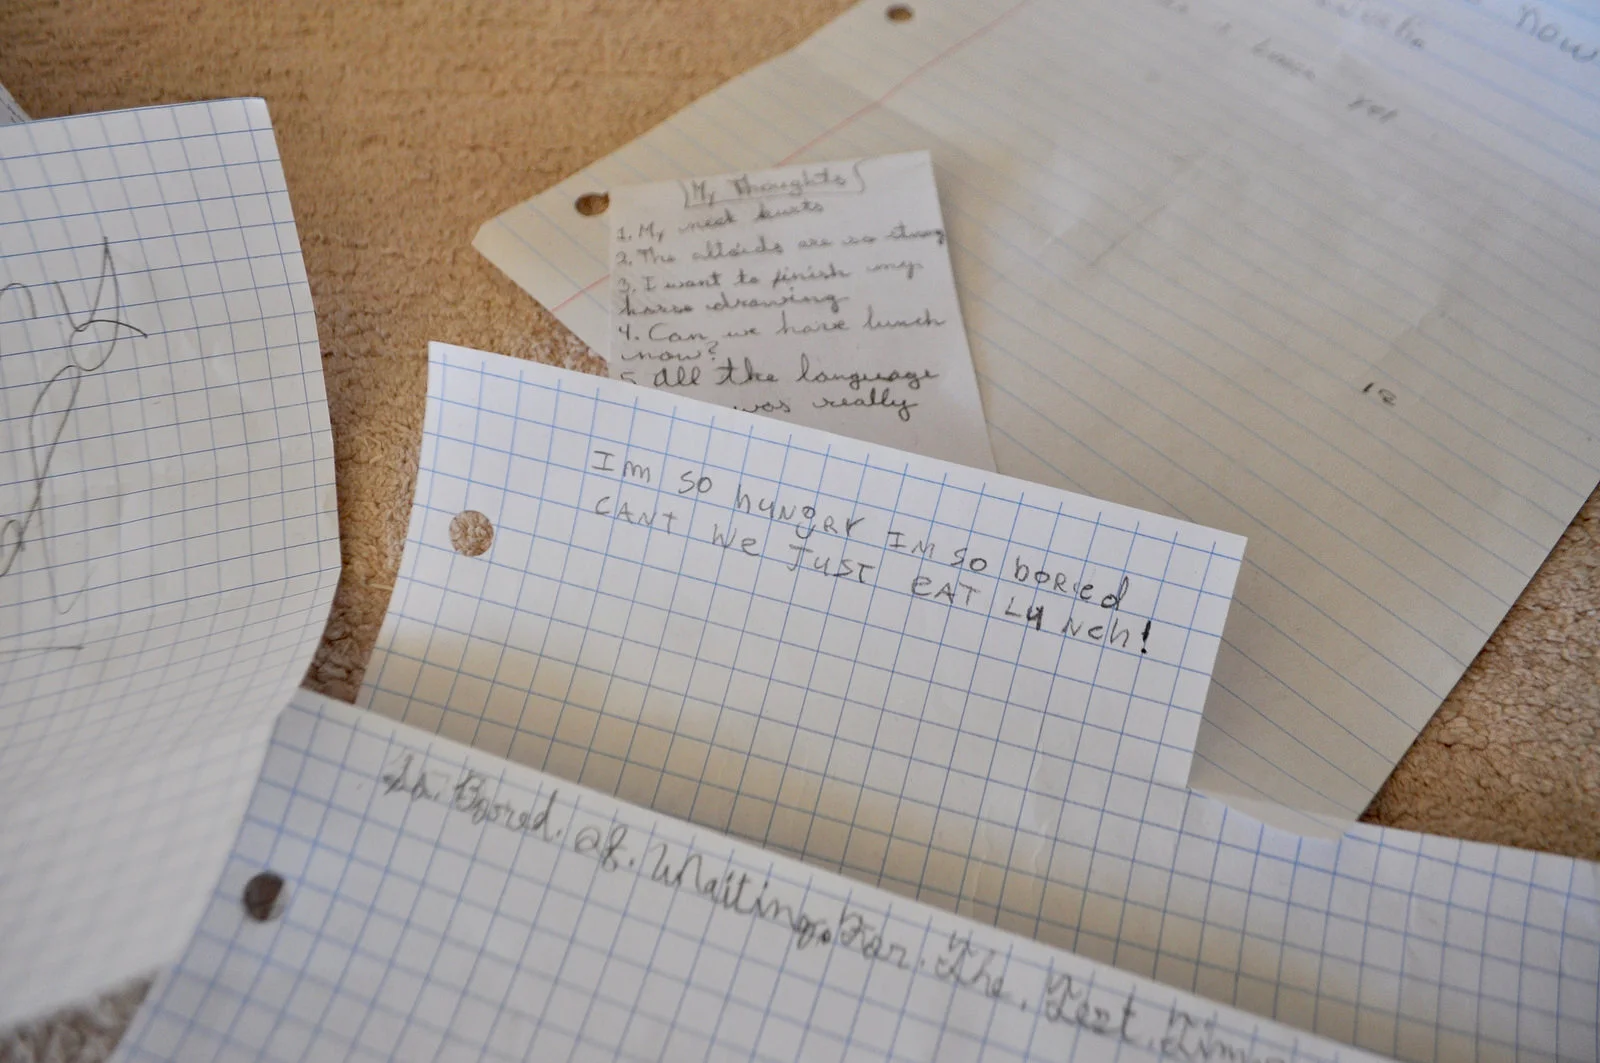 now
yet
My Thoughts
1. My neck hurts
2. The altoids are so strong
3. I want to finish my
horse drawing
4. Can we have lunch
now?
5. All the language
was really
12
Im so hungry Im so boried
CANT We JUST eAT LUNch!
Bored. of. Waiting. For. The. Test. Time